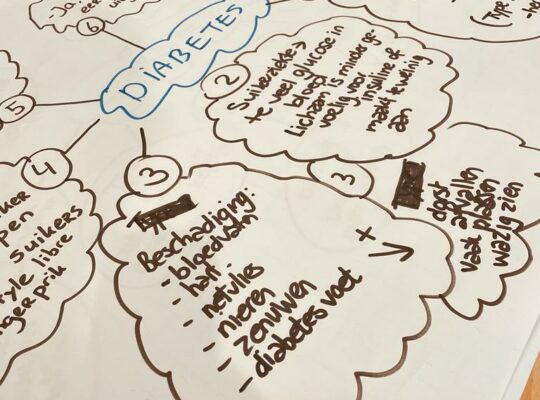 DIABETES
6
2
Suikerziekte →
te veel glucose in
bloed!
Lichaam is minder ge-
voelig voor
insuline of
maakt te weinig
aan
5
4
suikers
libre
prik
3
Beschadiging:
- bloedvaten
- hart
- netvlies
- nieren
- zenuwen
- diabetes voet
+
3
dorst
afvallen
vaak plassen
wazig zien
(Type